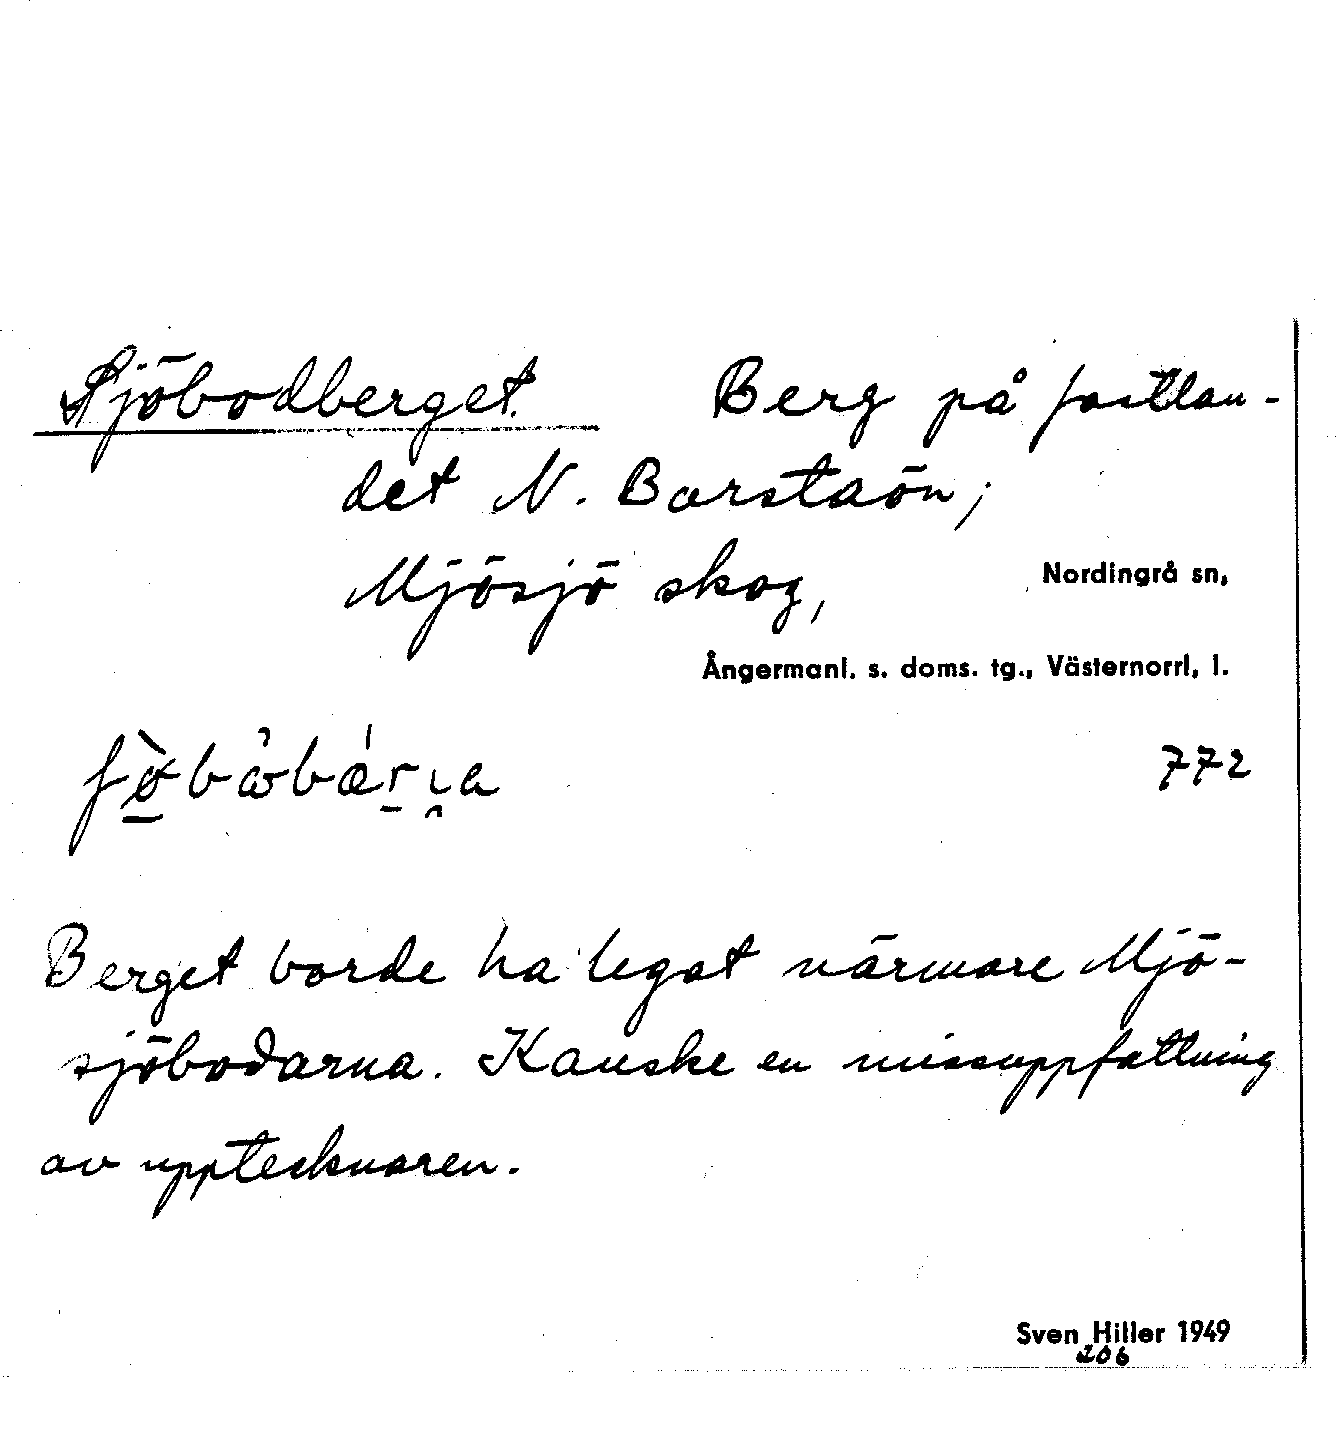 Sjöbodberget. Berg på fastlan-
det N. Barstaön;
Mjösjö skog,
Nordingrå sn,
Ångermanl. s. doms. tg., Västernorrl. l.
772
Berget borde ha legat närmare Mjö-
sjöbodarna. Kanske en missuppfattning
av upptecknaren.
Sven Hiller 1949
206